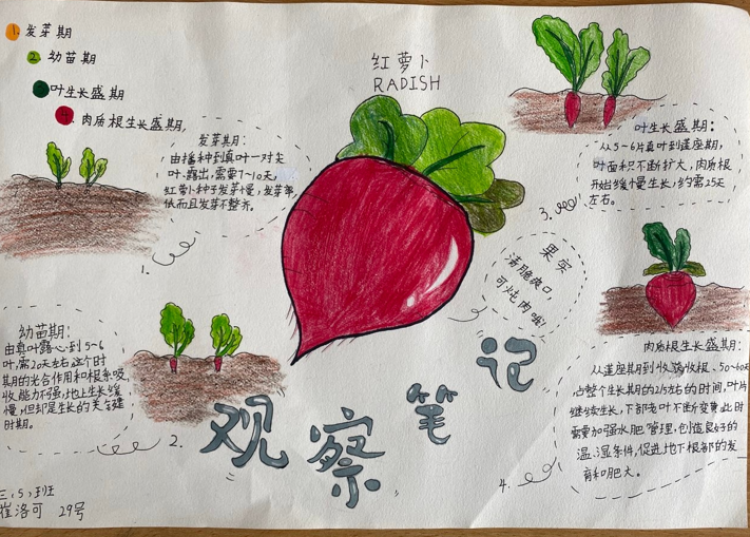 1. 发芽期
2. 幼苗期
叶生长盛期
4. 肉质根生长盛期
红萝卜
RADISH
发芽期：
由播种到真叶一对头
叶露出，需要7~10天，
红萝卜种子发芽慢，发芽率
低而且发芽不整齐。
1.
叶生长盛期：
从5~6片真叶到莲座期，
叶面积不断扩大，肉质根
开始缓慢生长，约需25天
左右。
3.
果实
清脆爽口，
可炖肉哦!
幼苗期：
由真叶露心到5~6
叶，需20天左右这个时
期的光合作用和根系吸
收能力不强，地上生长缓
慢，但却是生长的关键
时期。
2.
肉质根生长盛期：
从莲座期到收获收根，50~60天
占整个生长期的2/5左右的时间，叶片
继续生长，下部老叶不断变黄此时
需要加强水肥管理，创造良好的
温、湿条件，促进地下根部的发
育和肥大。
4.
观察笔记
三，5，班
崔洛可 29号